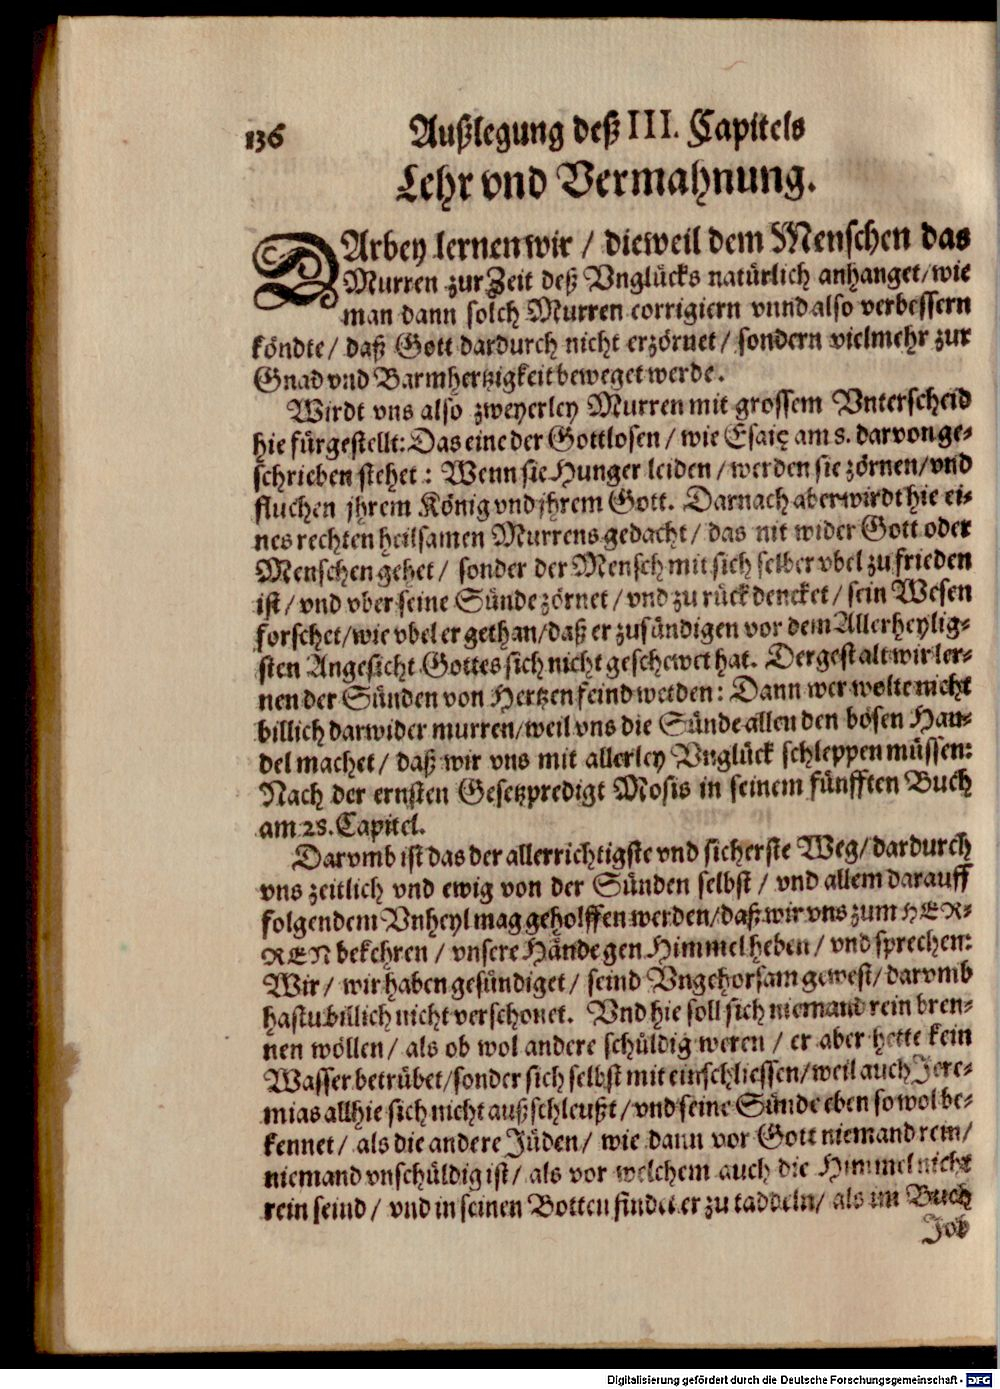 136 Außlegung deß III. Capitels
Lehr vnd Vermahnung.
DArbey lernen wir / dieweil dem Menschen das
Murren zur Zeit deß Vnglücks natürlich anhanget / wie
man dann solch Murren corrigiern vnnd also verbessern
köndte / daß Gott dardurch nicht erzörnet / sondern vielmehr zur
Gnad vnd Barmhertzigkeit beweget werde.
Wirdt vns also zweyerley Murren mit grossem Vnterscheid
hie fürgestellt: Das eine der Gottlosen / wie Esaię am 8. darvon ge-
schrieben stehet: Wenn sie Hunger leiden / werden sie zörnen / vnd
fluchen jhrem König vnd jhrem Gott. Darnach aber wirdt hie ei-
nes rechten heilsamen Murrens gedacht / das nit wider Gott oder
Menschen gehet / sonder der Mensch mit sich selber vbel zu frieden
ist / vnd vber seine Sünde zörnet / vnd zu rück dencket / sein Wesen
forschet / wie vbel er gethan / daß er zusündigen vor dem Allerheylig-
sten Angesicht Gottes sich nicht geschewet hat. Dergestalt wir ler-
nen der Sünden von Hertzen feind werden: Dann wer wolte nicht
billich darwider murren / weil vns die Sünde allen den bösen Han-
del machet / daß wir vns mit allerley Vnglück schleppen müssen:
Nach der ernsten Gesetzpredigt Mosis in seinem fünfften Buch
am 28. Capitel.
Darvmb ist das der allerrichtigste vnd sicherste Weg / dardurch
vns zeitlich vnd ewig von der Sünden selbst / vnd allem darauff
folgendem Vnheyl mag geholffen werden / daß wir vns zum HER-
REN bekehren / vnsere Hände gen Himmel heben / vnd sprechen:
Wir / wir haben gesündiget / seind Vngehorsam gewest / darvmb
hastu billich nicht verschonet. Vnd hie soll sich niemand rein bren-
nen wöllen / als ob wol andere schüldig weren / er aber hette kein
Wasser betrübet / sonder sich selbst mit einschliessen / weil auch Jere-
mias allhie sich nicht außschleußt / vnd seine Sünde eben so wol be-
kennet / als die andere Jüden / wie dann vor Gott niemand rein /
niemand vnschüldig ist / als vor welchem auch die Himmel nicht
rein seind / vnd in seinen Botten findet er zu taddeln / als im Buch
Job
Digitalisierung gefördert durch die Deutsche Forschungsgemeinschaft - DFG